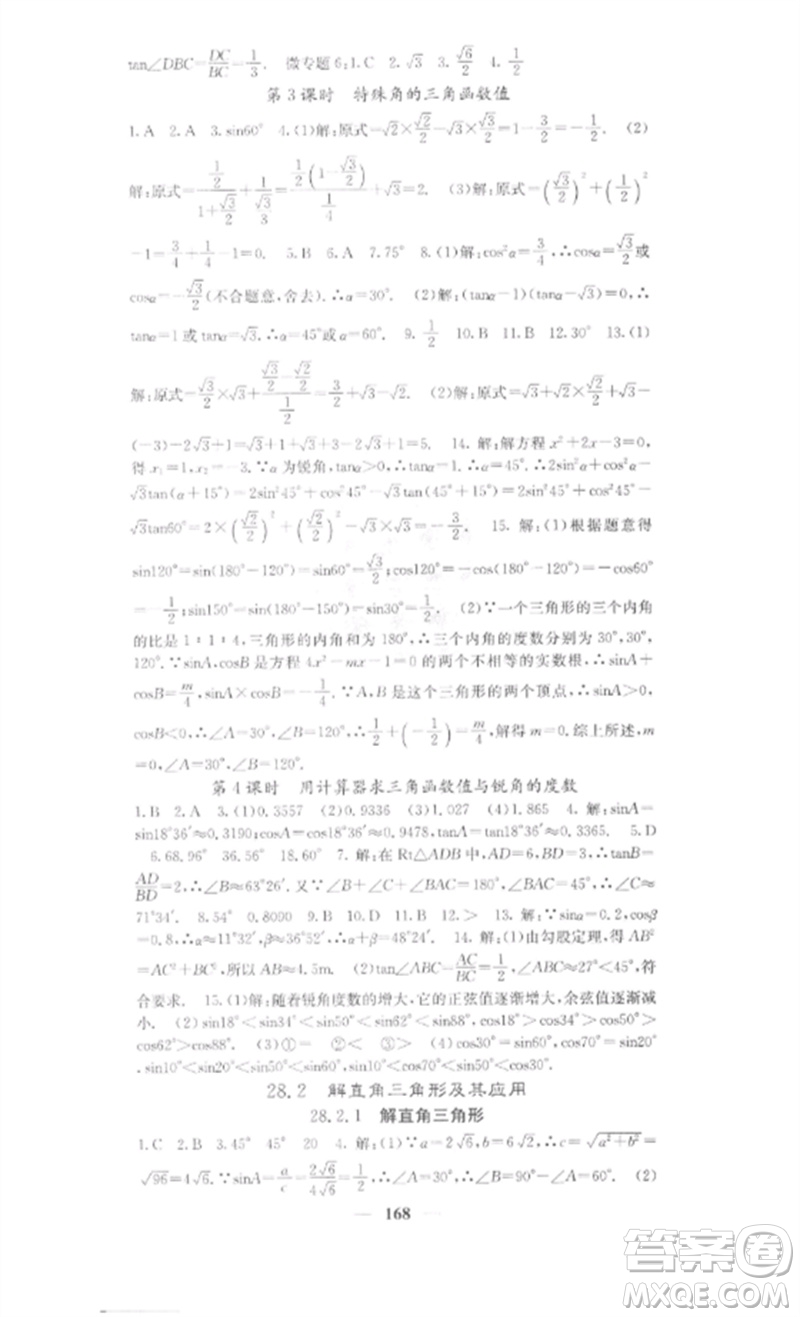 tan∠DBC=DC/BC=1/3. 微专题6:1.C 2.√3 3.√6/2 4.1/2
第3课时 特殊角的三角函数值
1.A 2.A 3.sin60° 4.(1)解:原式=√2×√2/2-√3×√3/2=1-3/2=-1/2. (2)
解:原式=(1/2)/(1+√3/2)+1/(√3/3)=(1/2(1-√3/2))/(1/4)+√3=2. (3)解:原式=(√3/2)²+(1/2)²
-1=3/4+1/4-1=0. 5.B 6.A 7.75° 8.(1)解:cos²α=3/4,∴cosα=√3/2或
cosα=-√3/2(不合题意,舍去).∴α=30°. (2)解:(tanα-1)(tanα-√3)=0,∴
tanα=1或tanα=√3.∴α=45°或α=60°. 9.1/2 10.B 11.B 12.30° 13.(1)
解:原式=√3/2×√3+(√3/2-√3/2)/(1/2)=3/2+0=3/2. (2)解:原式=√3+√2×√2/2+√3-
(-3)-2√3+1=√3+1+√3+3-2√3+1=5. 14.解:解方程x²+2x-3=0,
得x₁=1,x₂=-3.∵α为锐角,tanα>0,∴tanα=1.∴α=45°.∴2sin²α+cos²α-
√3tan(α+15°)=2sin²45°+cos²45°-√3tan(45°+15°)=2sin²45°+cos²45°-
√3tan60°=2×(√2/2)²+(√2/2)²-√3×√3=-3/2. 15.解:(1)根据题意得
sin120°=sin(180°-120°)=sin60°=√3/2;cos120°=-cos(180°-120°)=-cos60°=
-1/2;sin150°=sin(180°-150°)=sin30°=1/2. (2)∵一个三角形的三个内角
的比是1∶1∶4,三角形的内角和为180°,∴三个内角的度数分别为30°,30°,
120°.∵sinA,cosB是方程4x²-mx-1=0的两个不相等的实数根,∴sinA+
cosB=m/4,sinA·cosB=-1/4.∵A,B是三角形的两个顶点,∴sinA>0,
cosB<0,∴∠A=30°,∠B=120°.∴1/2+(-1/2)=m/4,解得m=0.综上所述,m=
0,∠A=30°,∠B=120°.
第4课时 用计算器求三角函数值与锐角的度数
1.B 2.A 3.(1)0.3557 (2)0.9336 (3)1.027 (4)1.865 4.解:sinA=
sin18°36′≈0.3190;cosA=cos18°36′≈0.9478,tanA=tan18°36′≈0.3365. 5.D
6.68.96° 36.56° 18.60° 7.解:在Rt△ADB中,AD=6,BD=3,∴tanB=
AD/BD=2,∴∠B≈63°26′.又∵∠B+∠C+∠BAC=180°,∠C=45°,∴∠BAC≈
71°34′. 8.54° 0.8000 9.B 10.D 11.B 12.A 13.解:∵sinα=0.5,cosβ
=0.8,∴α=30°,β≈36°52′12″.∴β>α. 14.解:(1)由勾股定理,得AB²
=AC²+BC²,所以AB≈4.5m. (2)tan∠ABC=AC/BC=1/2,∠ABC≈27°<45°,符
合要求. 15.(1)解:随着锐角度数的增大,它的正弦值逐渐增大,余弦值逐渐减
小. (2)sin18°<sin34°<sin50°<sin62°<sin88°,cos18°>cos34°>cos50°>
cos62°>cos88°. (3)①= ②< ③> (4)cos70°<sin30°<cos50°<
sin50°<cos30°<sin70°<cos10°.
28.2 解直角三角形及其应用
28.2.1 解直角三角形
1.C 2.B 3.45° 45° 20 4.解:(1)∵a=2√6,b=6√2,∴c=√(a²+b²)=
√96=4√6.∵sinA=a/c=2√6/4√6=1/2,∴∠A=30°,∴∠B=90°-∠A=60°. (2)
168
答案圈
MXQE.COM